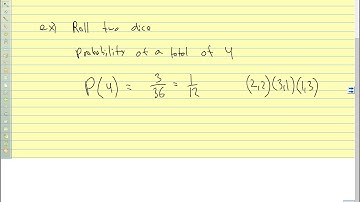 ex) Roll two dice
Probability of a total of 4
P(4) = 3/36 = 1/12 (2,2)(3,1)(1,3)